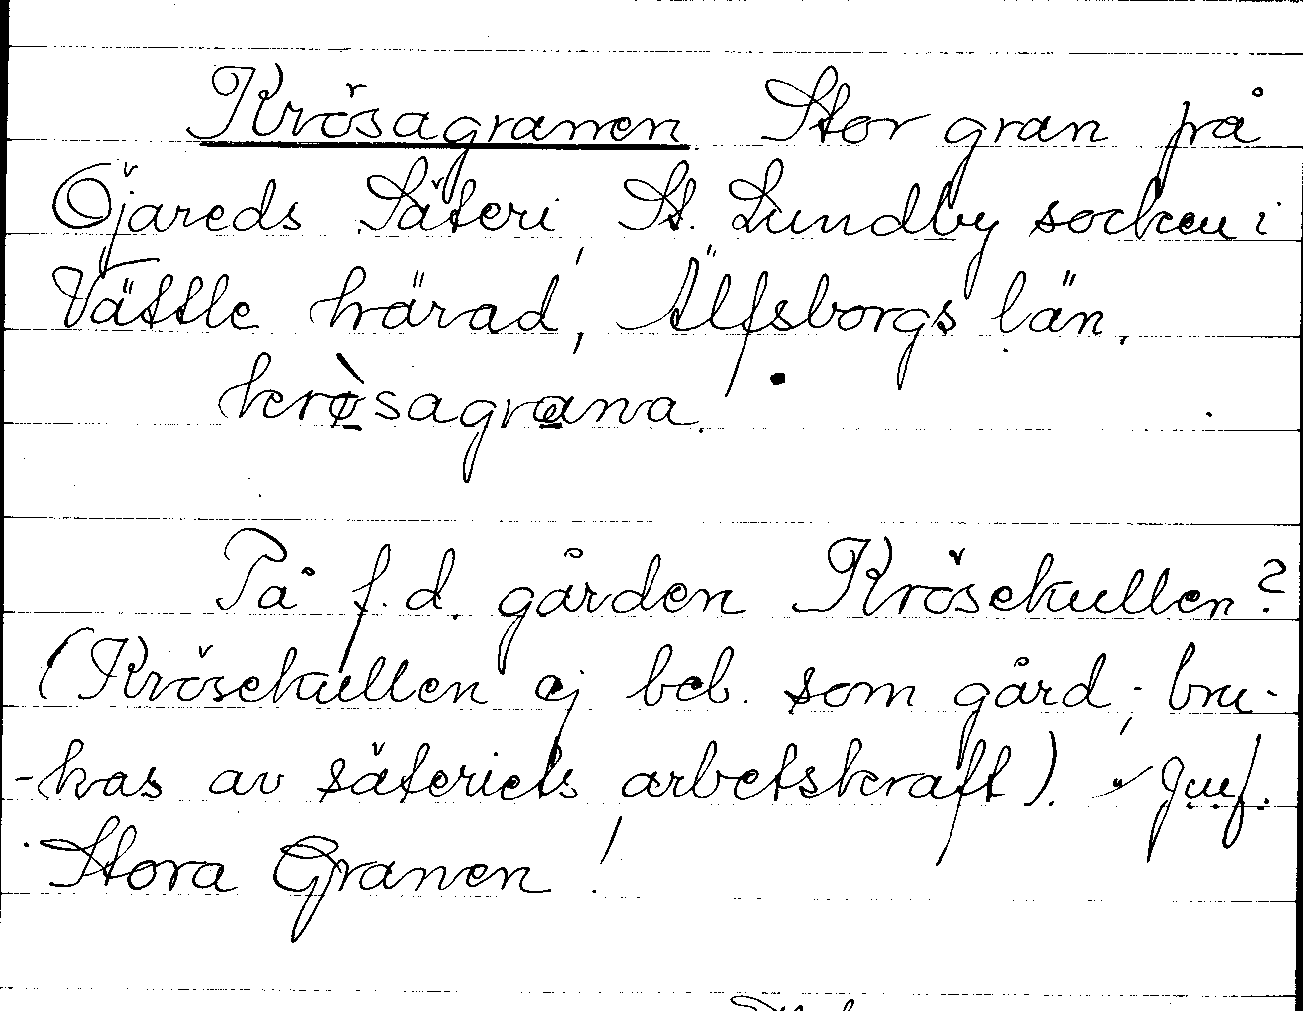 Krösagranen Stor gran på
Öjareds Säteri, St. Lundby socken i
Vättle härad, Älfsborgs län.
krø̀sagrana.
På f.d. gården Krösekullen?
(Krösekullen ej beb. som gård; bru-
-kas av säteriets arbetskraft). Jmf.
Stora Granen!